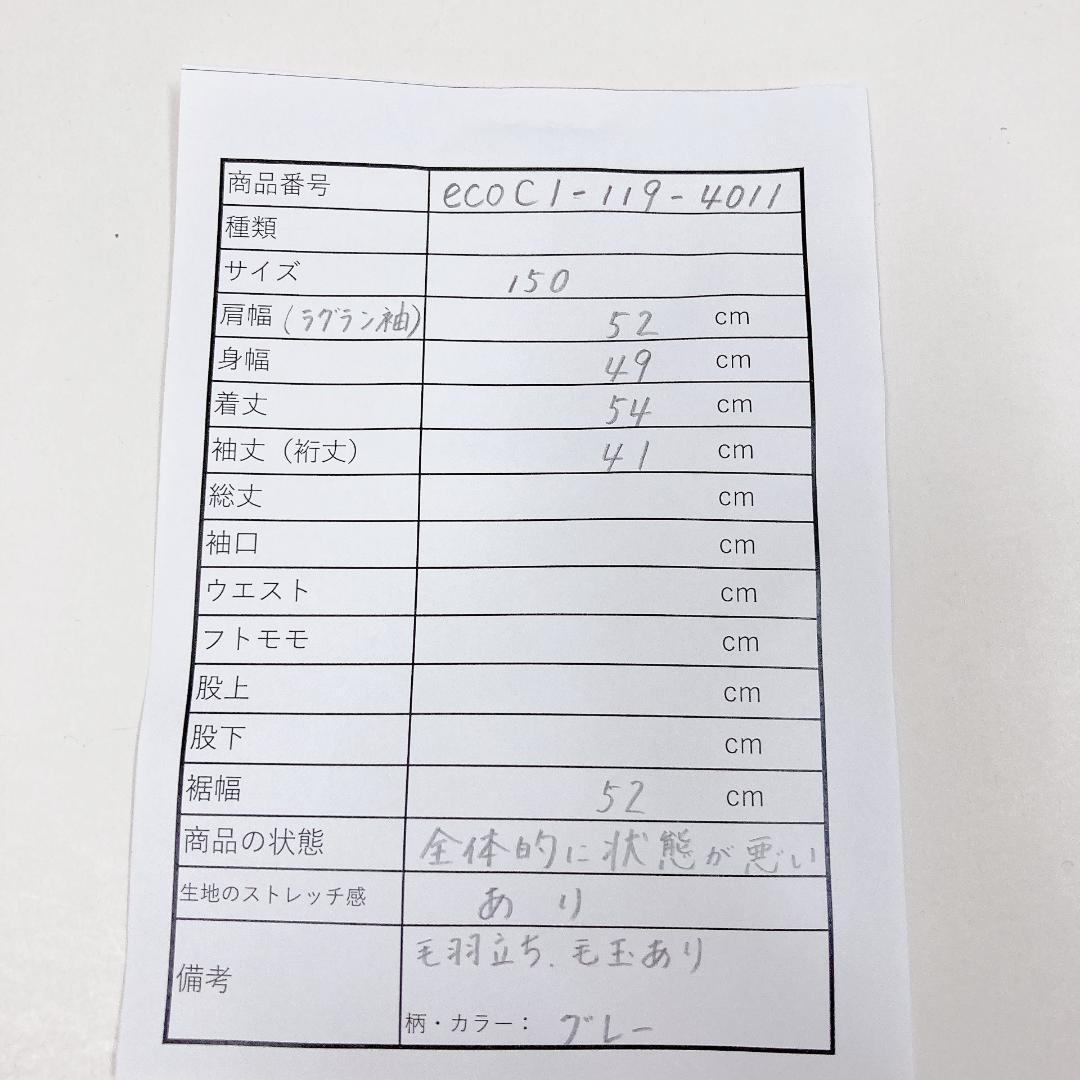 商品番号 ecoC1-119-4011
種類
サイズ 150
肩幅 (ラグラン袖) 52 cm
身幅 49 cm
着丈 54 cm
袖丈（裄丈） 41 cm
総丈 cm
袖口 cm
ウエスト cm
フトモモ cm
股上 cm
股下 cm
裾幅 52 cm
商品の状態 全体的に状態が悪い
生地のストレッチ感 あり
備考 毛羽立ち、毛玉あり
柄・カラー： グレー